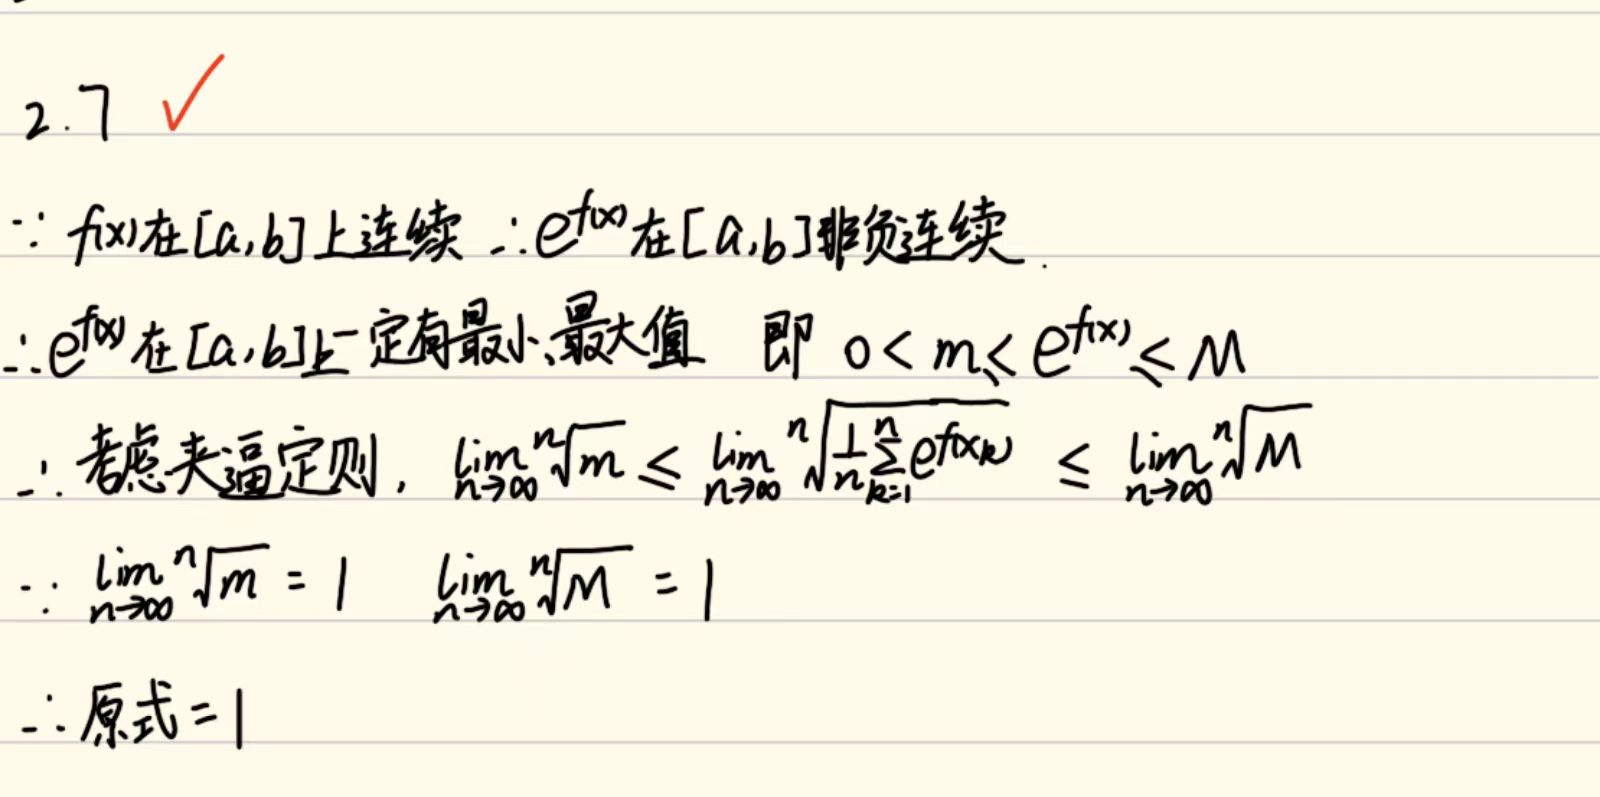 2.7 ✓
∵ f(x)在[a,b]上连续 ∴e^{f(x)}在[a,b]非负连续.
∴e^{f(x)}在[a,b]上一定有最小、最大值 即 0<m≤e^{f(x)}≤M
∴考虑夹逼定则, lim_{n→∞} ⁿ√m ≤ lim_{n→∞} ⁿ√(1/n ∑_{k=1}^{n} e^{f(x_k)}) ≤ lim_{n→∞} ⁿ√M
∵ lim_{n→∞} ⁿ√m = 1 lim_{n→∞} ⁿ√M = 1
∴原式=1